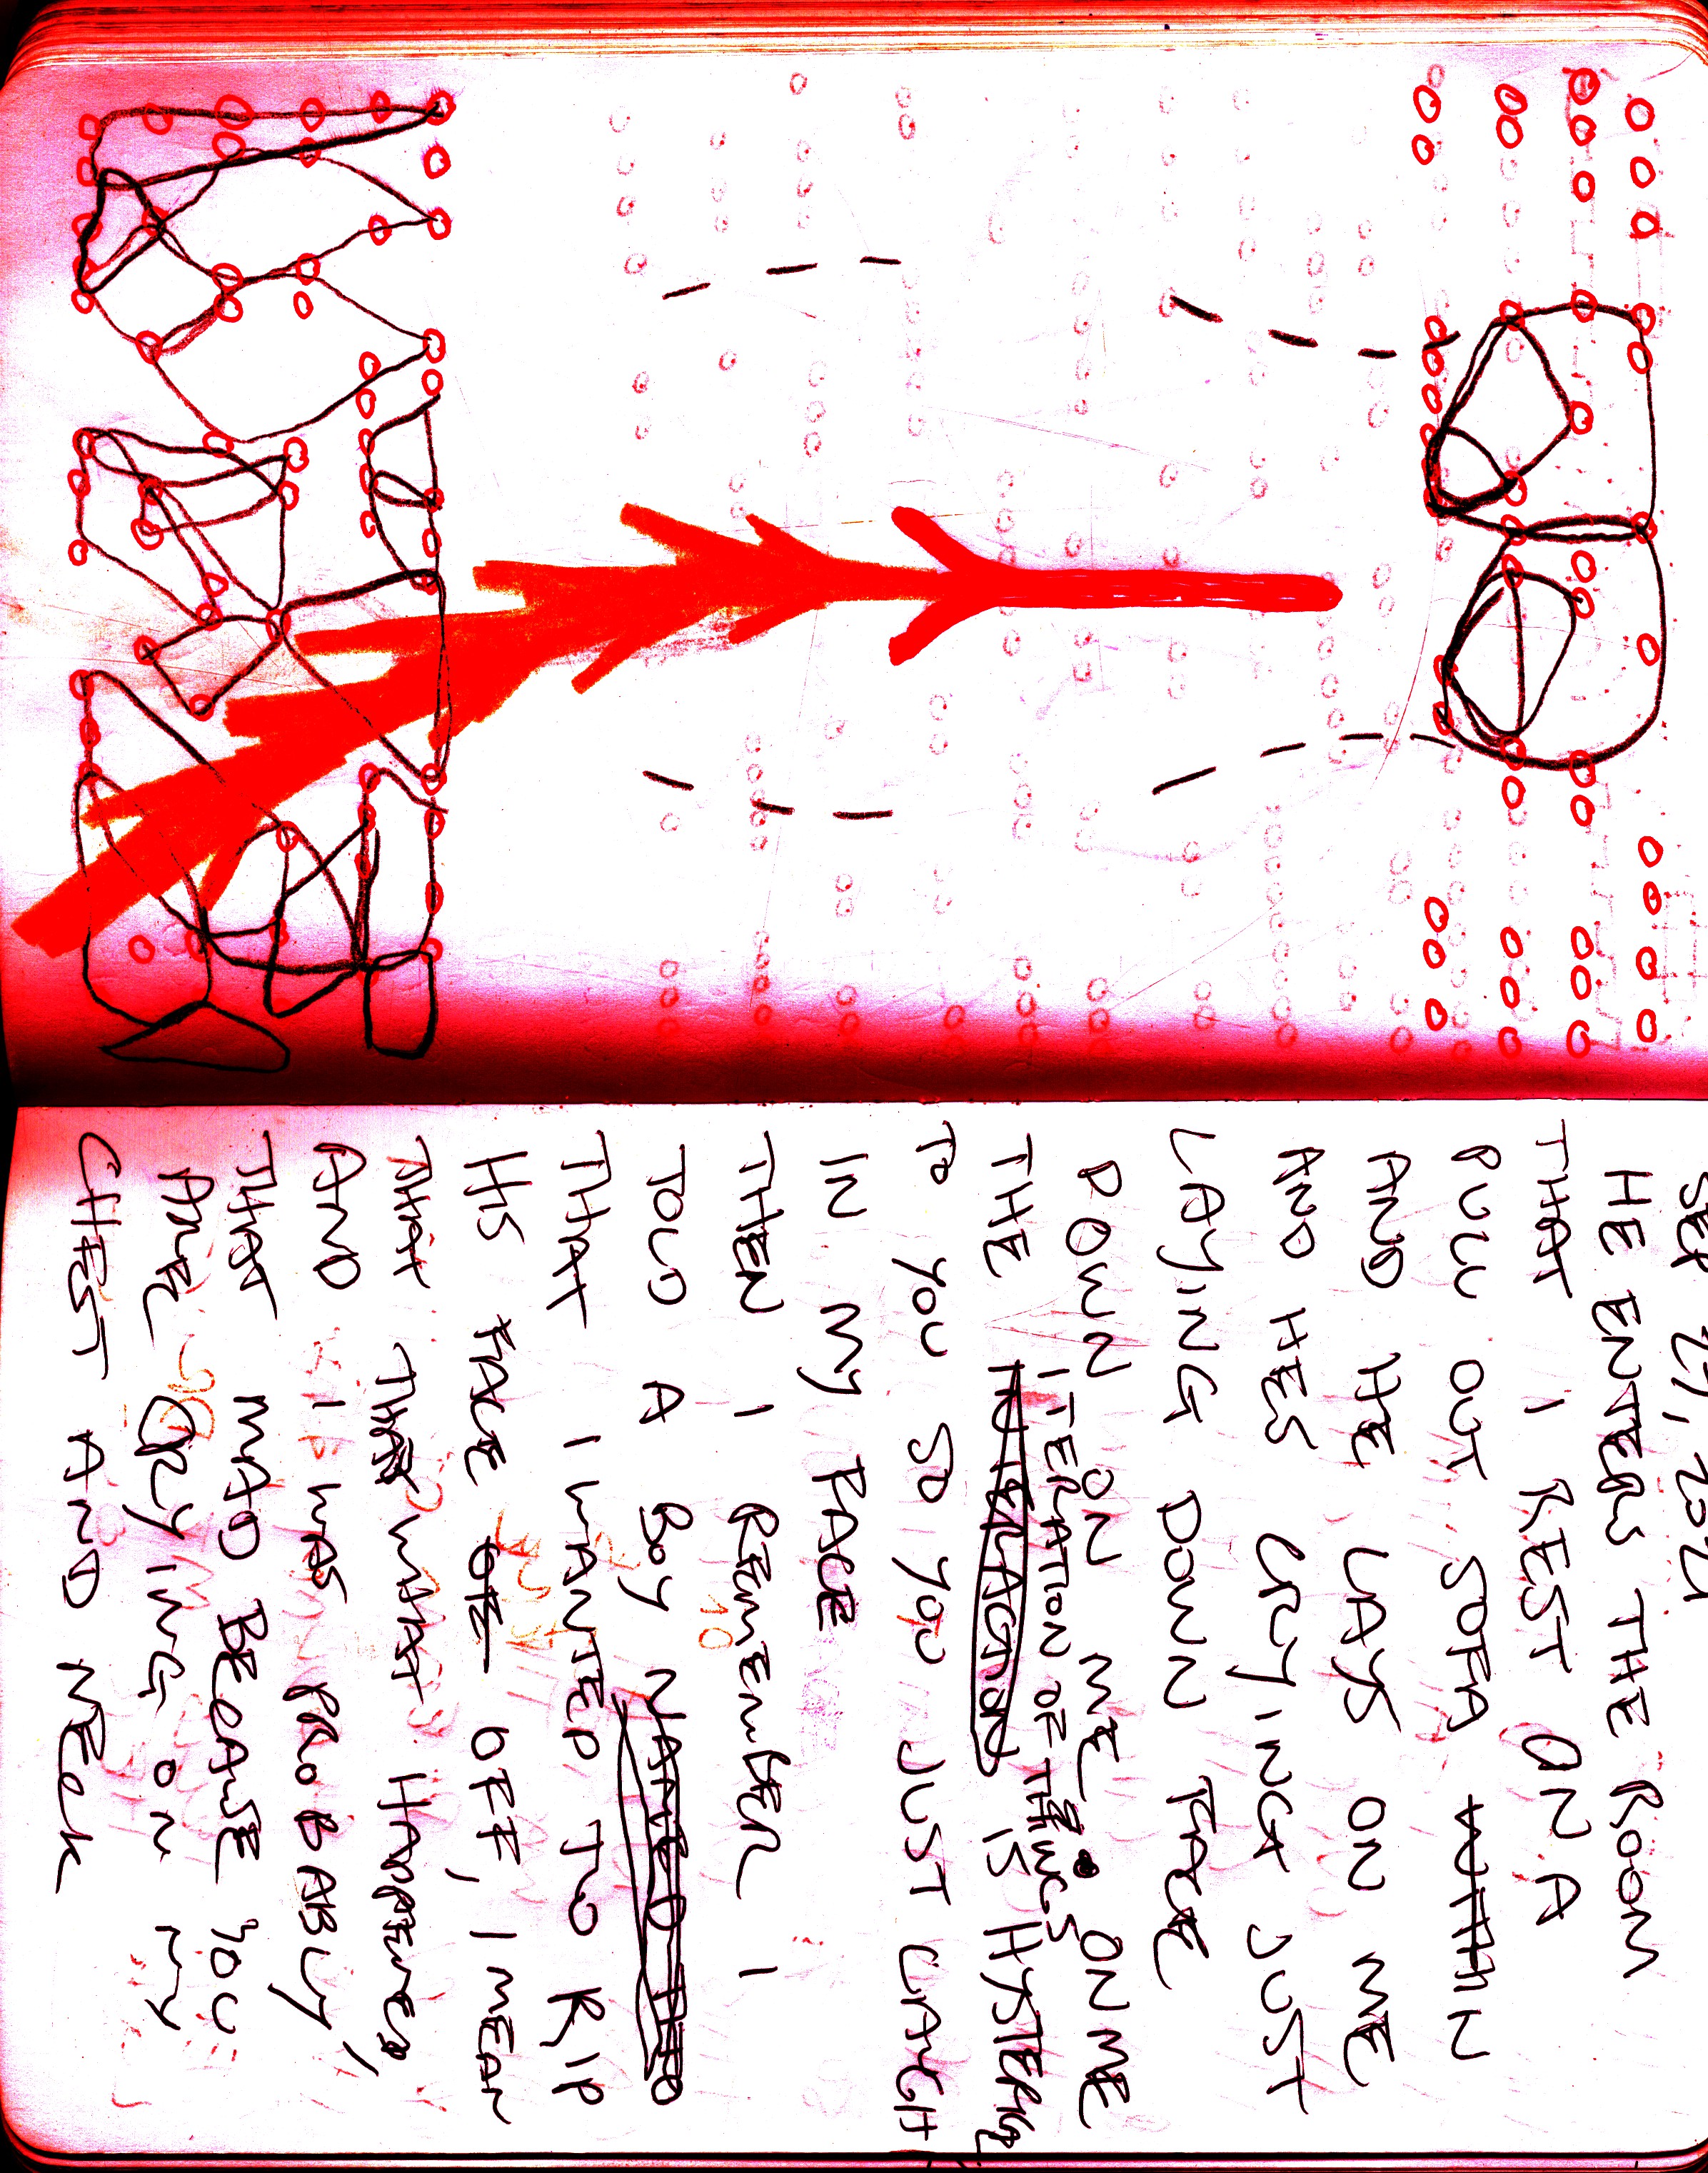 SEP
HE ENTERS THE ROOM
THAT I REST ON A
PULL OUT SOFA
AND HE LAYS ON ME
AND HES CRYING JUST
LAYING DOWN FACE
DOWN ON ME ON ME
ITERATION OF THE THINGS
THE IS HYSTERICAL
TO YOU SO YOU JUST LAUGH
IN MY FACE
THEN I REMEMBER I
TOLD A BOY NAMED
THAT I WANTED TO RIP
HIS FACE OFF, I MEAN
THAT WHAT HAPPENED
AND I WAS PROBABLY
THAT MAD BECAUSE YOU
ARE CRYING ON MY
CHEST AND NECK